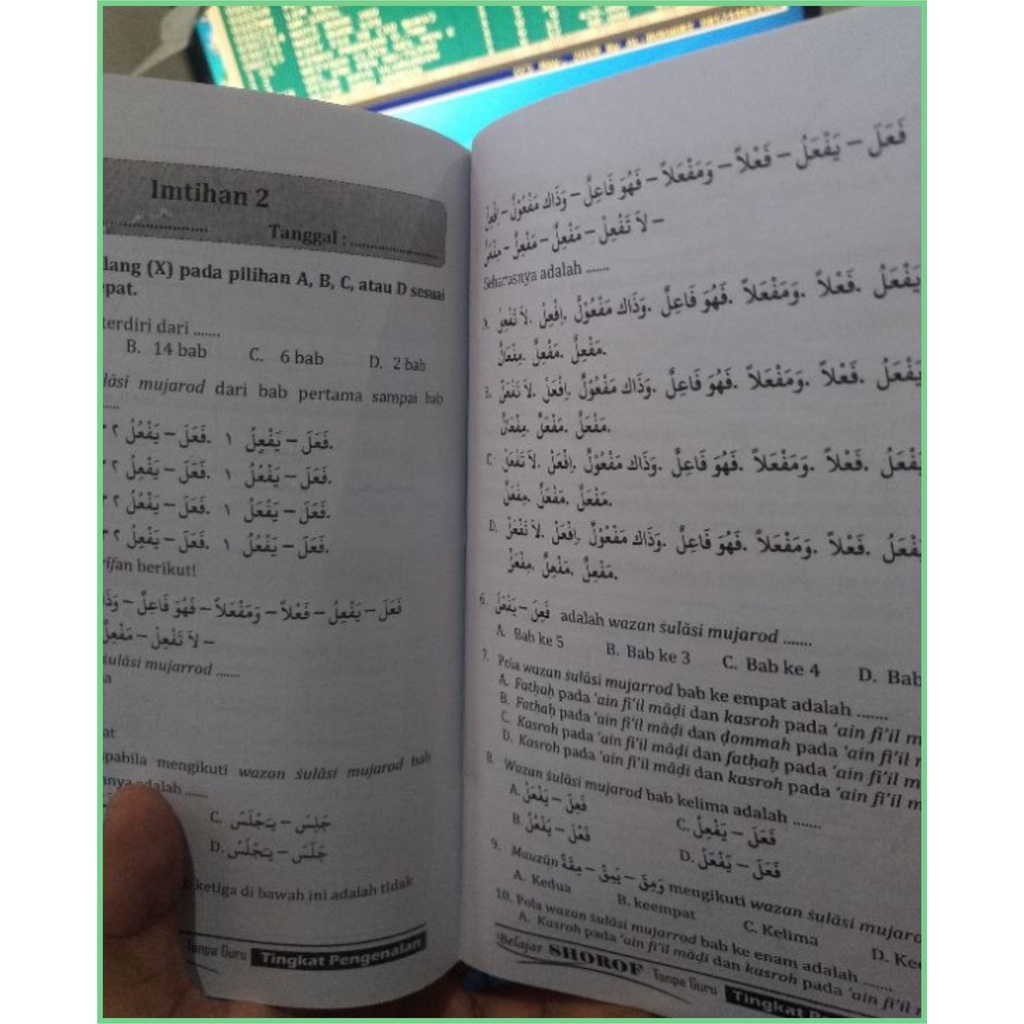 Imtihan 2
Tanggal :
lang (X) pada pilihan A, B, C, atau D sesuai
epat.
terdiri dari .......
B. 14 bab C. 6 bab D. 2 bab
mujarod dari bab pertama sampai bab
فَعَلَ – يَفْعِلُ. ١ فَعَلَ – يَفْعُلُ ٢
فَعَلَ – يَفْعُلُ. ١ فَعَلَ – يَفْعِلُ ٢
فَعَلَ – يَفْعَلُ. ١ فَعَلَ – يَفْعُلُ ٢
فَعَلَ – يَفْعُلُ. ١ فَعَلَ – يَفْعِلُ ٢
berikut!
فَعَلَ – يَفْعِلُ – فَعْلاً – وَمَفْعَلاً – فَهُوَ فَاعِلٌ – وَذَا
– لاَ تَفْعِلْ – مَفْعِلٌ
śulāsi mujarrod .......
pabila mengikuti wazan śulāsi mujarod bab
nya adalah ......
C. جَلِسَ – يَجْلَسُ
D. جَلَسَ – يَجْلَسُ
ketiga di bawah ini adalah tidak
Tanpa Guru Tingkat Pengenalan
فَعَلَ – يَفْعَلُ – فَعْلاً – وَمَفْعَلاً – فَهُوَ فَاعِلٌ – وَذَاك مَفْعُوْلٌ – اِفْعِلْ
– لاَ تَفْعِلْ – مَفْعِلٌ – مَفْعِلٌ – مِفْعَلٌ
Seharusnya adalah ......
A. يَفْعَلُ. فَعْلاً. وَمَفْعَلاً. فَهُوَ فَاعِلٌ. وَذَاك مَفْعُوْلٌ. اِفْعِلْ. لاَ تَفْعِلْ.
مَفْعِلٌ. مَفْعِلٌ. مِفْعَانٌ
B. يَفْعَلُ. فَعْلاً. وَمَفْعَلاً. فَهُوَ فَاعِلٌ. وَذَاك مَفْعُوْلٌ. اِفْعَلْ. لاَ تَفْعَلْ.
مَفْعَلٌ. مَفْعَلٌ. مِفْعَانٌ
C. يَفْعَلُ. فَعْلاً. وَمَفْعَلاً. فَهُوَ فَاعِلٌ. وَذَاك مَفْعُوْلٌ. اِفْعَلْ. لاَ تَفْعَلْ.
مَفْعَلٌ. مَفْعَلٌ. مِفْعَلٌ
D. يَفْعَلُ. فَعْلاً. وَمَفْعَلاً. فَهُوَ فَاعِلٌ. وَذَاك مَفْعُوْلٌ. اِفْعَلْ. لاَ تَفْعَلْ.
مَفْعِلٌ. مَفْعِلٌ. مِفْعَلٌ
6. فَعِلَ – يَفْعَلُ adalah wazan śulāsi mujarod .......
A. Bab ke 5 B. Bab ke 3 C. Bab ke 4 D. Bab
7. Pola wazan śulāsi mujarrod bab ke empat adalah .......
A. Fatḥaḥ pada 'ain fi'il māḍi dan kasroh pada 'ain fi'il m
B. Fatḥaḥ pada 'ain fi'il māḍi dan ḍommah pada 'ain fi'il
C. Kasroh pada 'ain fi'il māḍi dan fatḥaḥ pada 'ain fi'il m
D. Kasroh pada 'ain fi'il māḍi dan kasroh pada 'ain fi'il m
8. Wazan śulāsi mujarod bab kelima adalah .......
A. فَعِلَ – يَفْعَلُ C. فَعَلَ – يَفْعِلُ
B. فَعُلَ – يَفْعُلُ D. فَعَلَ – يَفْعَلُ
9. Mauzūn وَمِقَ – يَمِقُ – مِقَةً mengikuti wazan śulāsi mujaro
A. Kedua B. keempat C. Kelima D. Ke
10. Pola wazan śulāsi mujarrod bab ke enam adalah .......
A. Kasroh pada 'ain fi'il māḍi dan kasroh pada 'ain fi'il
Belajar SHOROF Tanpa Guru Tingkat